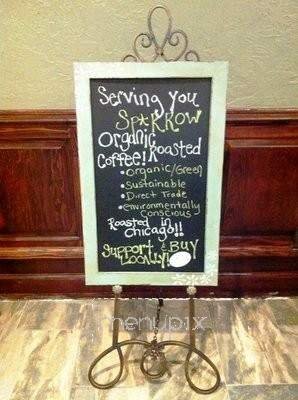 Serving you
Sp*rrow
Organic Roasted
Coffee!
•Organic/Green
•Sustainable
•Direct Trade
•environmentally
conscious
Roasted in
Chicago!!
Support & BUY
LOCALLY!
menupix